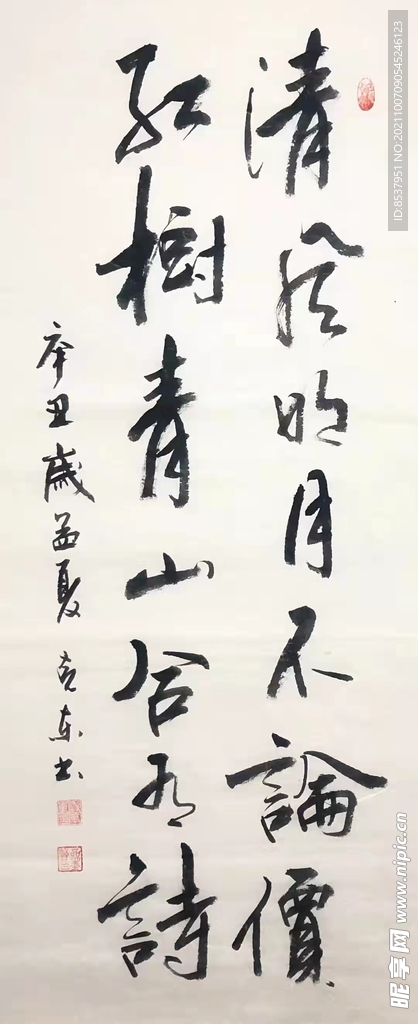 清風明月不論價
紅樹青山合有詩
辛丑歲孟夏 克東書
ID:8537951 NO:20211007090545246123
昵享网 www.nipic.cn